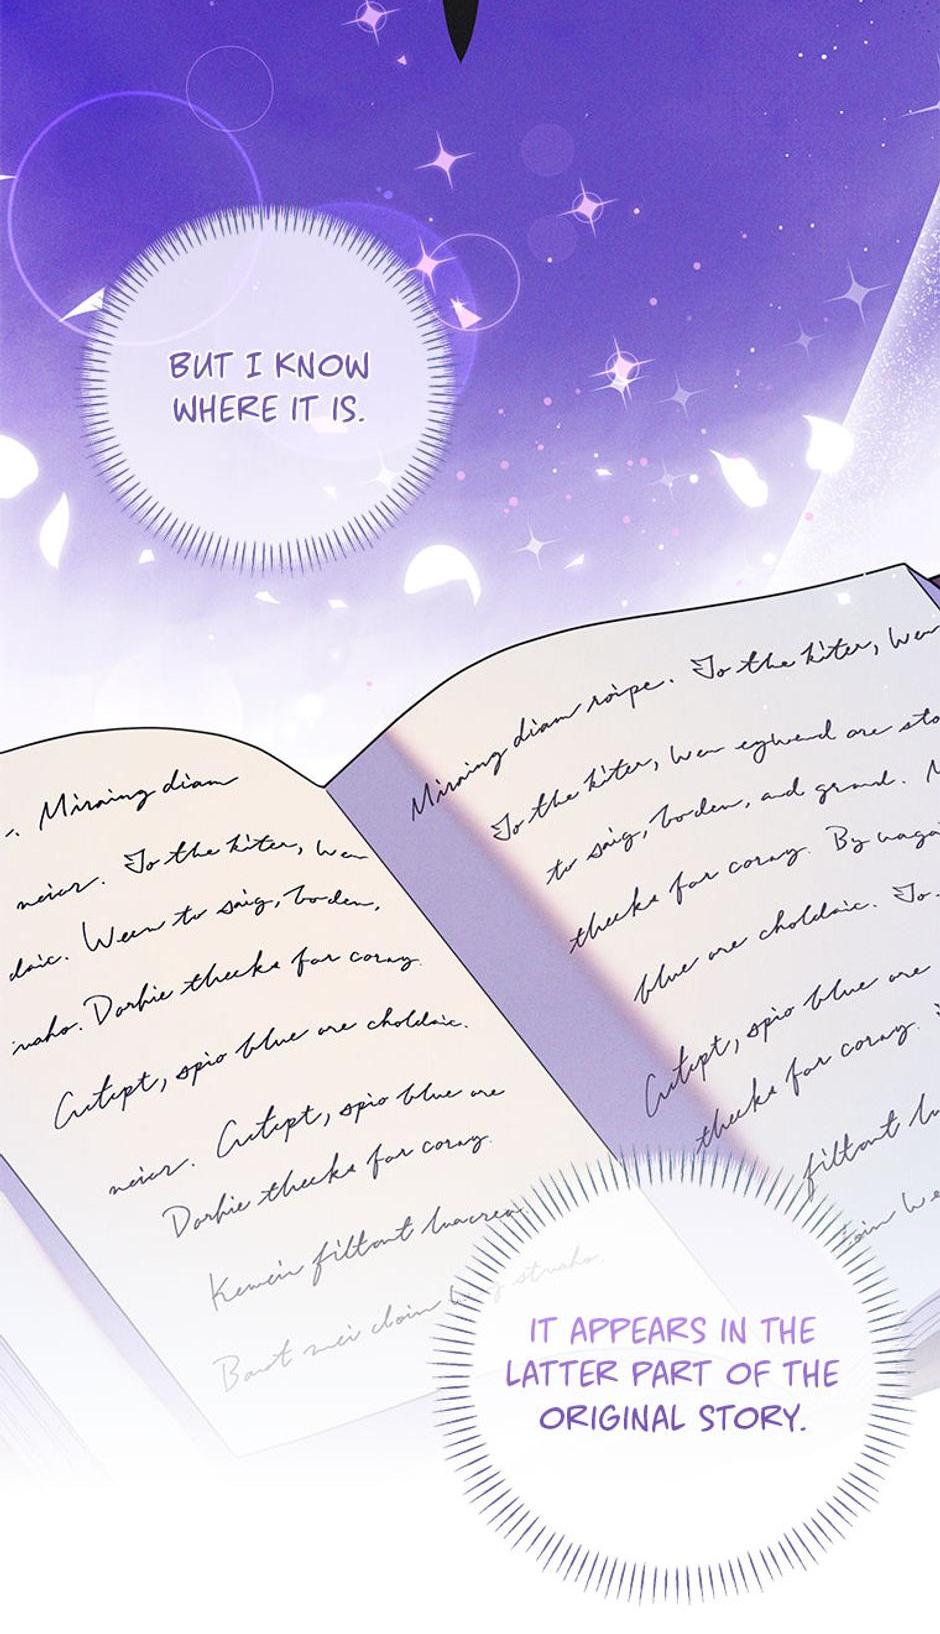 BUT I KNOW
WHERE IT IS.
Miraing diam
neior. To the kiter, Wen
daic. Ween to saig, borden,
naho. Dorhie theeks far coray.
Cutept, spio blue are choldaic.
neior. Cutept, spio blue are
Dorhie theeks far coray.
Kewein filtont luacrea
Bout mei cloin
struaho.
Miraing diam roipe. To the kiter, Wen
To the kiter, Wen eywend are sto
to saig, borden, and grand.
theeks far coray. By uaga
blue are choldaic. To
Cutept, spio blue are
theeks far coray.
filtont lu
oin We
IT APPEARS IN THE
LATTER PART OF THE
ORIGINAL STORY.